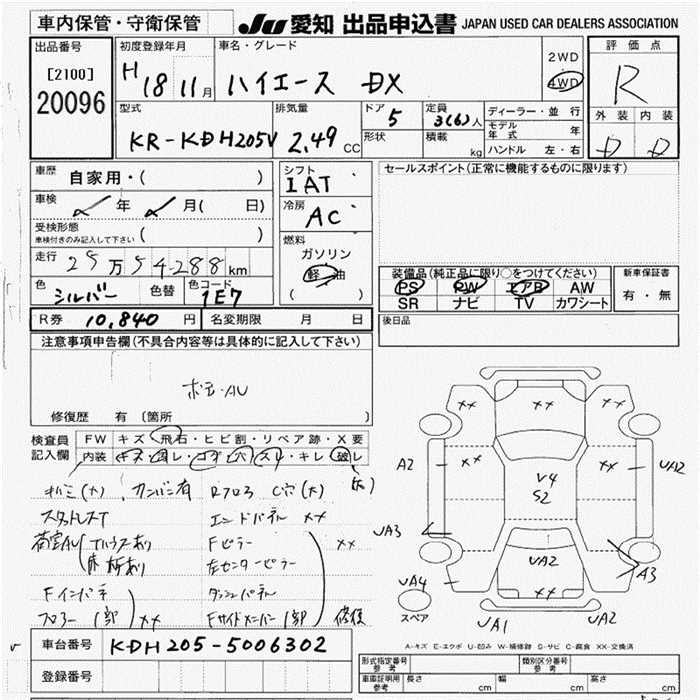 車内保管・守衛保管 JU 愛知 出品申込書 JAPAN USED CAR DEALERS ASSOCIATION
出品番号
[2100]
20096
初度登録年月
H18 11月
車名・グレード
ハイエース DX
2WD
4WD
評価点
R
外装 内装
D D
型式
KR-KDH205V
排気量
2.49 CC
ドア
5
形状
定員
3(6)人
積載 kg
ディーラー・並行
モデル年式 年
ハンドル 左・右
車歴
自家用・( )
車検
年 月( 日)
受検形態
車検付きのみ記入して下さい ( )
走行
25万54288km
色
シルバー
色替
色コード
1E7
シフト
IAT
冷房
AC
燃料
ガソリン
軽油
( )
セールスポイント(正常に機能するものに限ります)
装備品(純正品に限り○をつけてください)
PS PW エアB AW
SR ナビ TV カワシート
新車保証書
有・無
R券 10,840円 名変期限 月 日
後日品
注意事項申告欄(不具合内容等は具体的に記入して下さい)
修復歴 有〔箇所 〕
検査員記入欄
FW キズ・飛石・ヒビ割・リペア跡・X要
内装 キズ・凹レ・コゲ・穴・スレ・キレ・破レ
カンバン有 Rフロア C穴(大)
スタットレスT エンドパネル ××
荷室AV 床板あり
Fピラー
左センターピラー
××
Fインパネ ダッシュパネル
フロアー 1部 ×× Fサイドメンバー 1部 修復
×× ×× ××
A2 ×× ×× UA2
V4
S2
UA3
UA2
UA4 A3
スペア
UA1 UA2
A-キズ E-エクボ U-凹み W-補修跡 S-サビ C-腐食 XX-交換済
車台番号 KDH205-5006302
登録番号
型式指定番号 参考
類別区分番号 参考
車庫証明用 参考
長さ cm 幅 cm 高さ cm